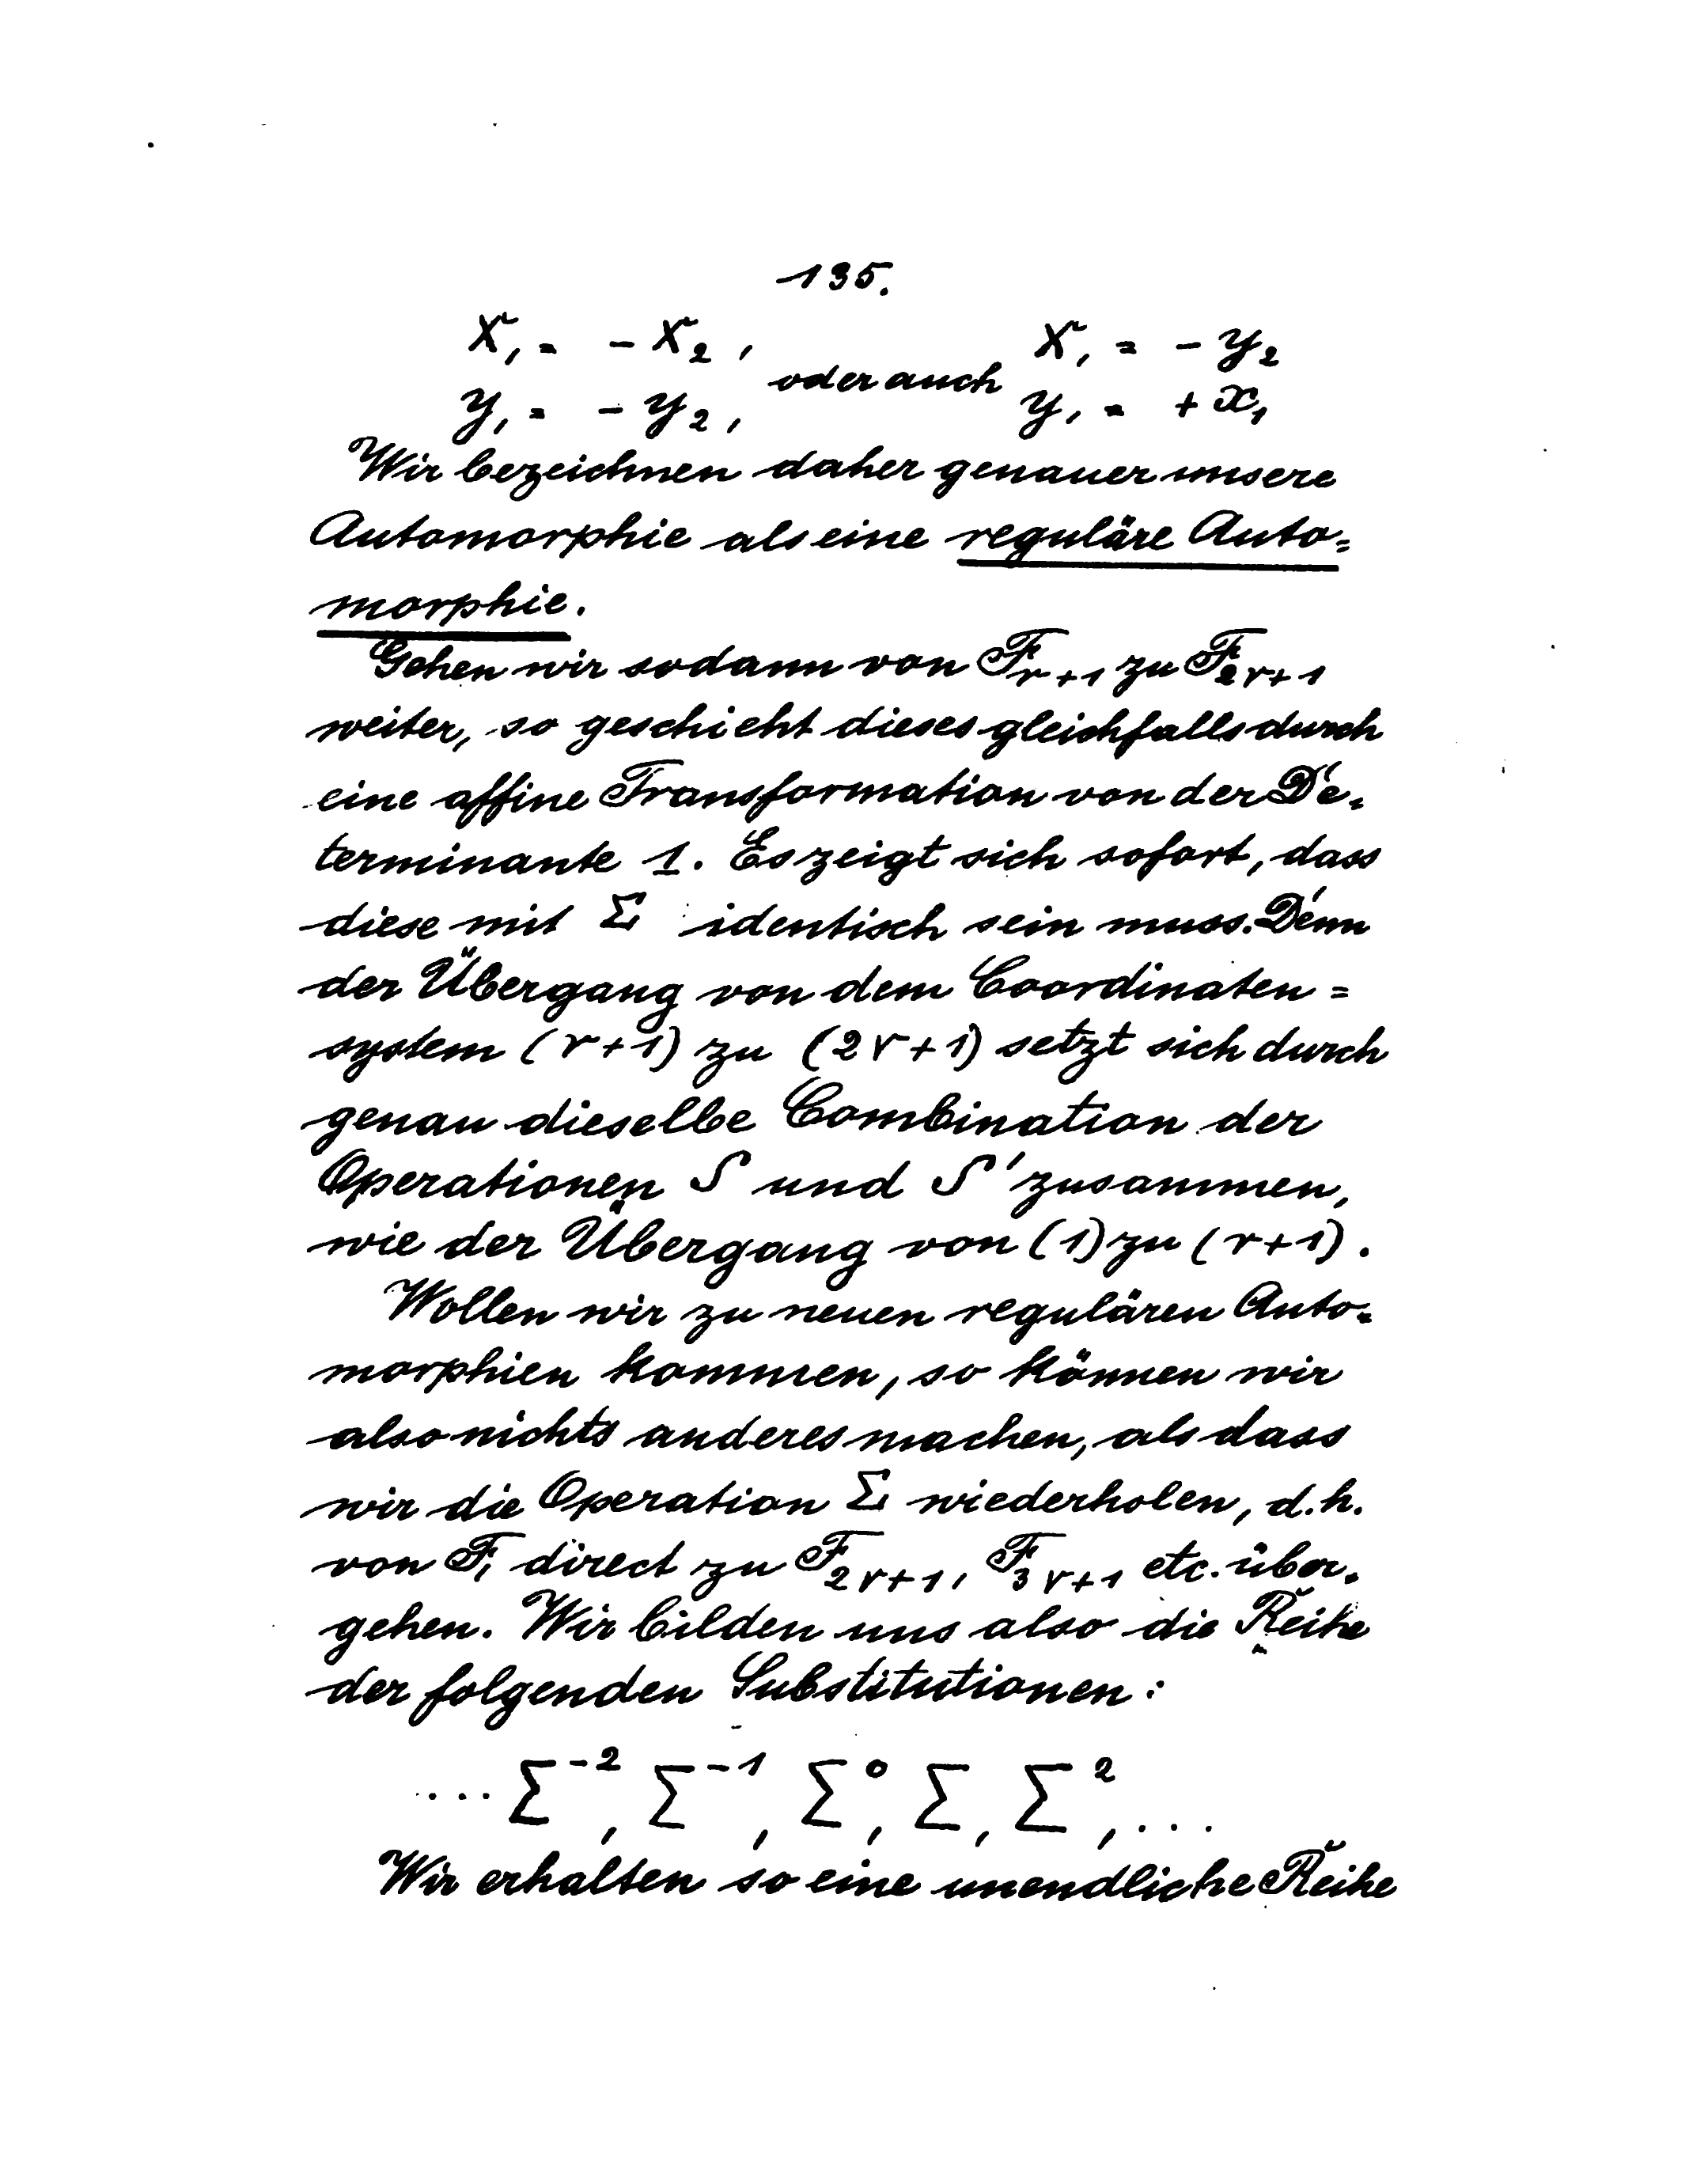 135.
X₁ = - X₂, oder auch X₁ = - y₂
y₁ = - y₂, y₁ = + x₁
Wir bezeichnen daher genauer unsere
Automorphie als eine reguläre Auto=
morphie.
Gehen wir sodann von F_{r+1} zu F_{2r+1}
weiter, so geschieht dieses gleichfalls durch
eine affine Transformation von der De-
terminante 1. Es zeigt sich sofort, dass
diese mit Σ identisch sein muss. Denn
der Übergang von dem Coordinaten=
system (r+1) zu (2r+1) setzt sich durch
genau dieselbe Combination der
Operationen S und S' zusammen,
wie der Übergang von (1) zu (r+1).
Wollen wir zu neuen regulären Auto=
morphien kommen, so können wir
also nichts anderes machen, als dass
wir die Operation Σ wiederholen, d.h.
von F₁ direct zu F_{2r+1}, F_{3r+1} etc. über-
gehen. Wir bilden uns also die Reihe
der folgenden Substitutionen:
... Σ⁻², Σ⁻¹, Σ⁰, Σ, Σ², ...
Wir erhalten so eine unendliche Reihe